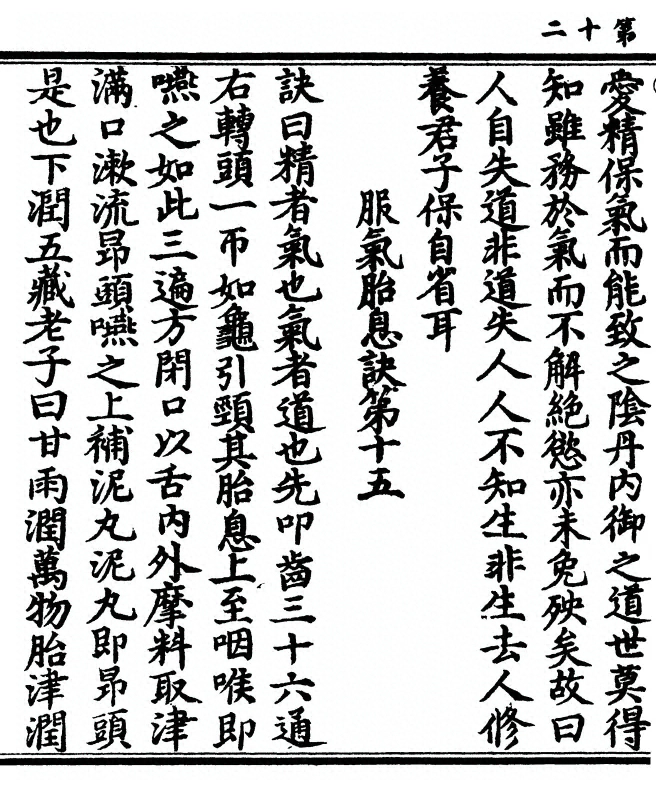 第十二
愛精保氣而能致之陰丹内御之道世莫得
知雖務於氣而不解絕慾亦未免殃矣故曰
人自失道非道失人人不知生非生去人修
養君子保自省耳
服氣胎息訣第十五
訣曰精者氣也氣者道也先叩齒三十六通
右轉頭一帀如龜引頸其胎息上至咽喉即
嚥之如此三遍方閉口以舌内外摩料取津
滿口漱流昂頭嚥之上補泥丸泥丸即昂頭
是也下潤五藏老子曰甘雨潤萬物胎津潤